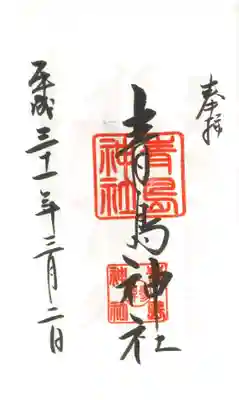 奉拝
青島神社
青島神社
平成三十一年三月二日